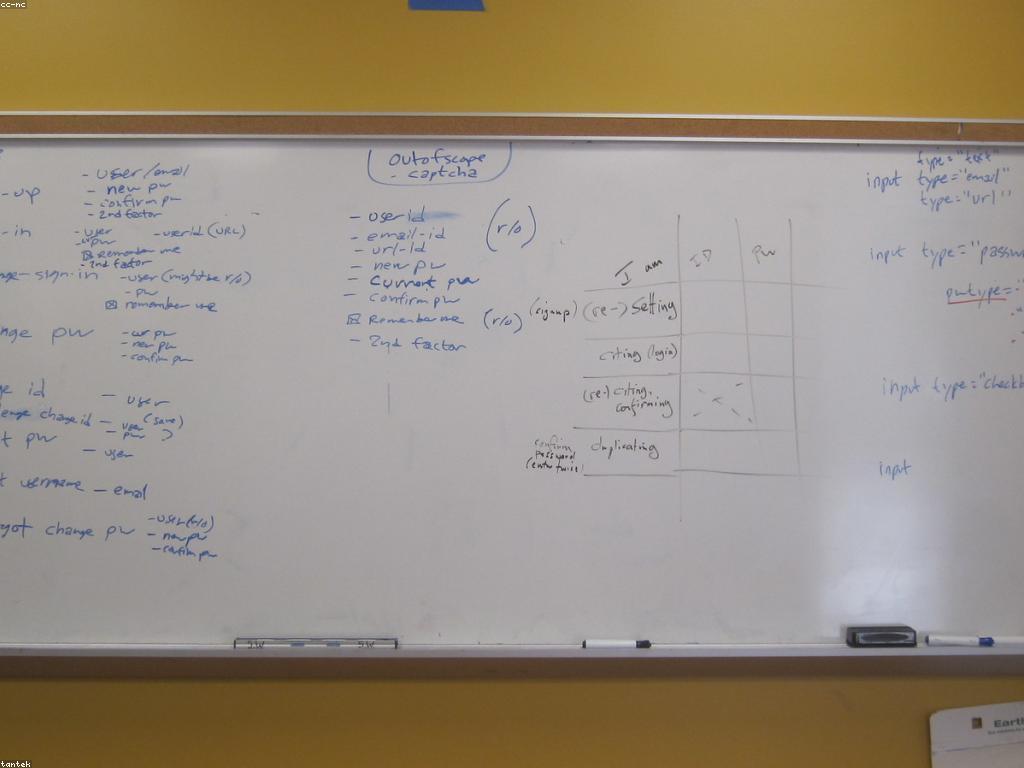 cc-nc
- user/email
- new pw
- confirm pw
- 2nd factor
-up
-in
- user
- pw
☒ Remember me
- 2nd factor
- userid (URL)
nge-sign-in
- user (might be r/o)
- pw
☒ remember me
nge pw
- cur pw
- new pw
- confirm pw
ge id
- user
enge change id
- user (same)
- pw
t pw
- user
t username - email
got change pw
- user (r/o)
- new pw
- confirm pw
out of scope
- captcha
- user id
- email-id
- url-id
(r/o)
- new pw
- current pw
- confirm pw
☒ Remember me (r/o)
- 2nd factor
I am
ID
PW
(signup) (re-) setting
citing (login)
(re-) citing
confirming
confirm
password
(enter twice)
duplicating
type="text"
input type="email"
type="url"
input type="passw
pwtype="
input type="checkb
input
S.W
S.W
Earth
tantek